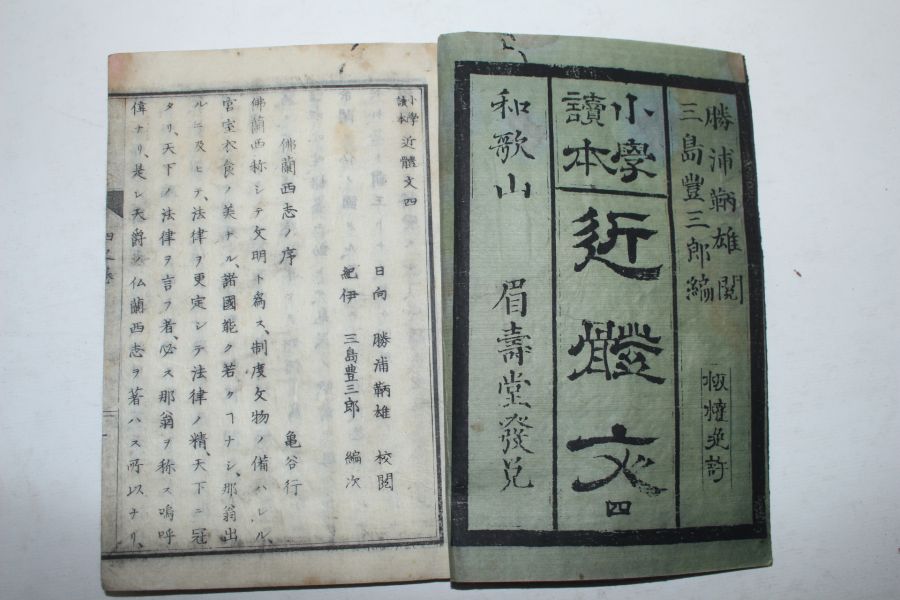 勝浦鞆雄閲
三島豐三郎編
板權免許
小學
讀本
近體文 四
和歌山 眉壽堂發兌
小學
讀本 近體文四
日向 勝浦鞆雄 校閲
紀伊 三島豊三郎 編次
佛蘭西志ノ序 亀谷行
佛蘭西称シテ文明ト為ス、制度文物ノ備ハレル、
宮室衣食ノ美ナル、諸國能ク若クヿナシ、那翁出
ルニ及ヒテ、法律ヲ更定シテ法律ノ精、天下ニ冠
タリ、天下ノ法律ヲ言フ者、必ス那翁ヲ称ス嗚呼
偉ナリ、是レ天爵ノ仏蘭西志ヲ著ハス所以ナリ、